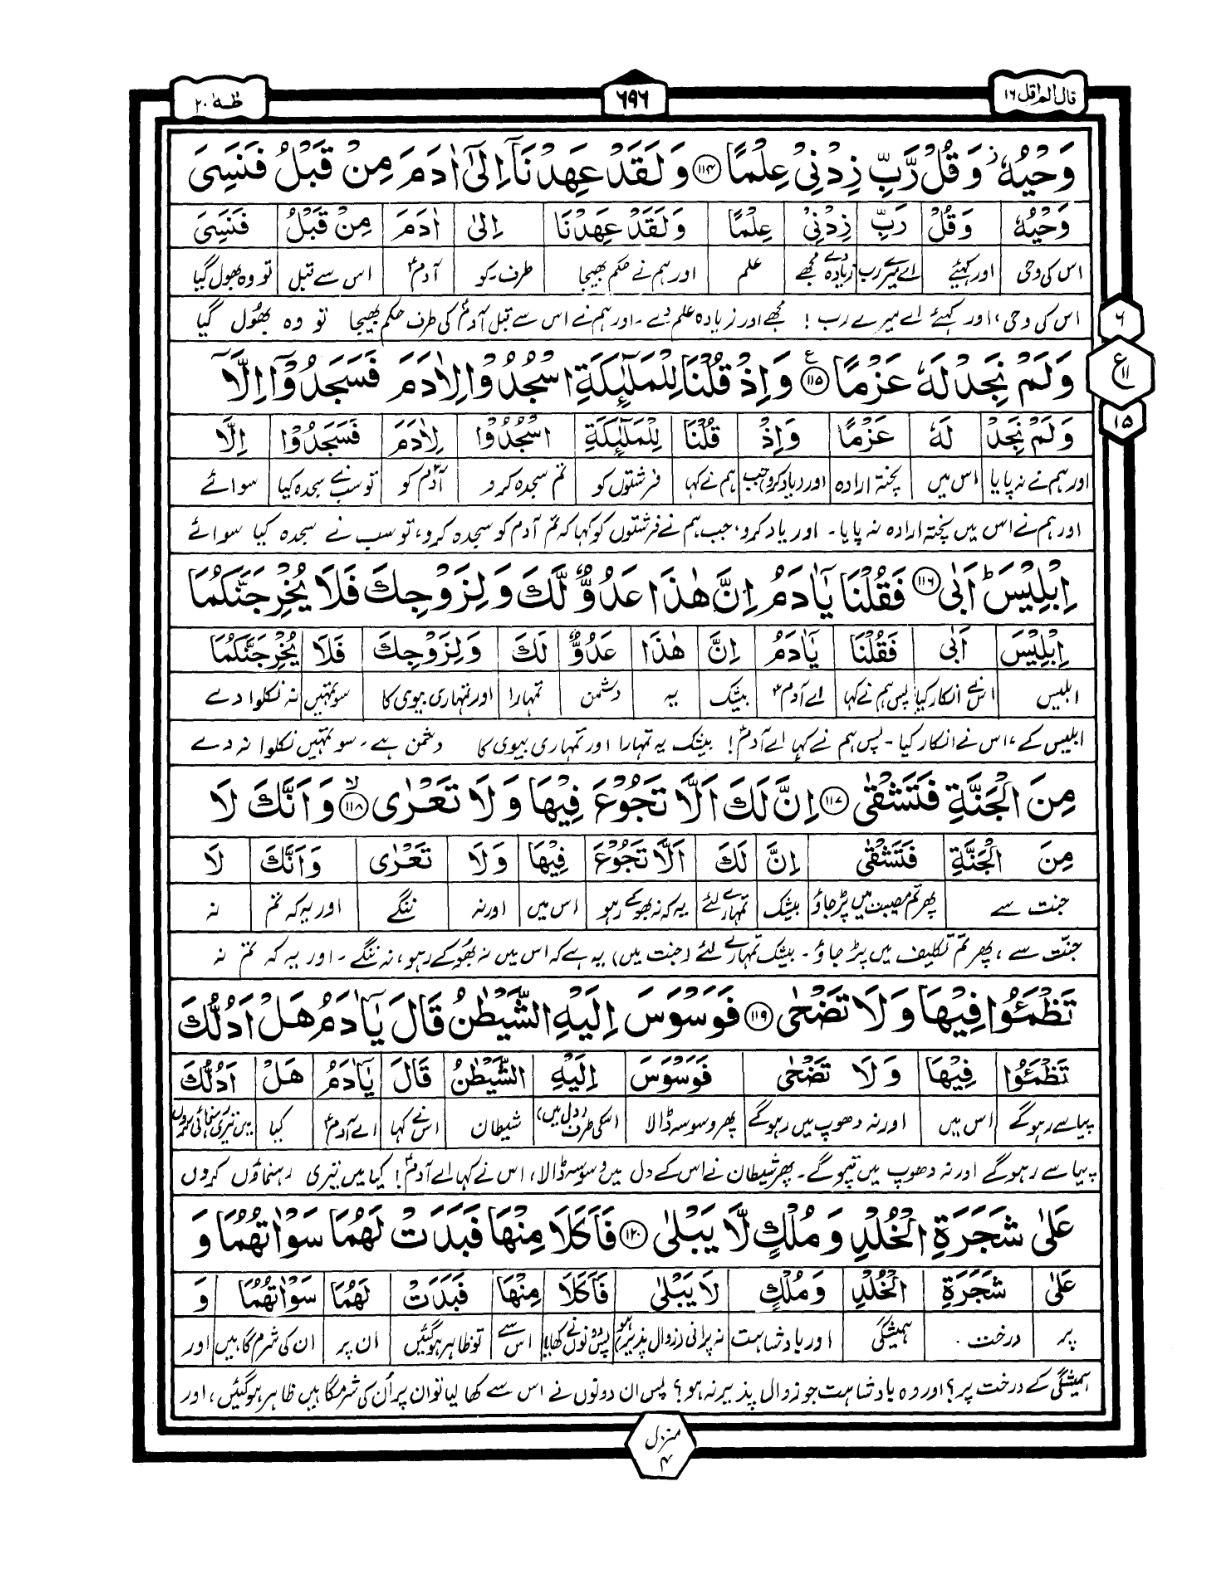 قال الم اقل ١٦
٦٩٦
طٰهٰ ٢٠
وَحْيُهٗ ۫ وَقُلْ رَّبِّ زِدْنِیْ عِلْمًا ۝۱۱۴ وَلَقَدْ عَهِدْنَاۤ اِلٰۤی اٰدَمَ مِنْ قَبْلُ فَنَسِیَ
وَحْيُهٗ وَقُلْ رَبِّ زِدْنِیْ عِلْمًا وَلَقَدْ عَهِدْنَا اِلٰی اٰدَمَ مِنْ قَبْلُ فَنَسِیَ
اس کی وحی اور کہیئے اے میرے رب زیادہ دے مجھے علم اور ہم نے حکم بھیجا طرف۔کو آدمؑ اس سے قبل تو وہ بھول گیا
اس کی وحی، اور کہیئے اے میرے رب ! مجھے اور زیادہ علم دے ۔ اور ہم نے اس سے قبل آدمؑ کی طرف حکم بھیجا تو وہ بھُول گیا
٦
وَلَمْ نَجِدْ لَهٗ عَزْمًا ۝۱۱۵ وَاِذْ قُلْنَا لِلْمَلٰٓئِكَةِ اسْجُدُوْا لِاٰدَمَ فَسَجَدُوْۤا اِلَّاۤ
ع ١١
١٥
وَلَمْ نَجِدْ لَهٗ عَزْمًا وَاِذْ قُلْنَا لِلْمَلٰٓئِكَةِ اسْجُدُوْا لِاٰدَمَ فَسَجَدُوْا اِلَّا
اور ہم نے نہ پایا اس میں پختہ ارادہ اور (یاد کرو) جب ہم نے کہا فرشتوں کو تم سجدہ کرو آدمؑ کو تو سب نے سجدہ کیا سوائے
اور ہم نے اس میں پختہ ارادہ نہ پایا۔ اور یاد کرو، جب ہم نے فرشتوں کو کہا کہ تم آدم کو سجدہ کرو، تو سب نے سجدہ کیا سوائے
اِبْلِیْسَ ؕ اَبٰی ۝۱۱۶ فَقُلْنَا یٰۤاٰدَمُ اِنَّ هٰذَا عَدُوٌّ لَّكَ وَلِزَوْجِكَ فَلَا یُخْرِجَنَّكُمَا
اِبْلِیْسَ اَبٰی فَقُلْنَا یٰۤاٰدَمُ اِنَّ هٰذَا عَدُوٌّ لَكَ وَلِزَوْجِكَ فَلَا یُخْرِجَنَّكُمَا
ابلیس اس نے انکار کیا پس ہم نے کہا اے آدمؑ بیشک یہ دشمن تمہارا اور تمہاری بیوی کا سو تمہیں نہ نکلوا دے
ابلیس کے، اس نے انکار کیا ۔ پس ہم نے کہا اے آدمؑ ! بیشک یہ تمہارا اور تمہاری بیوی کا دشمن ہے۔ سو تمہیں نکلوا نہ دے
مِنَ الْجَنَّةِ فَتَشْقٰی ۝۱۱۷ اِنَّ لَكَ اَلَّا تَجُوْعَ فِیْهَا وَلَا تَعْرٰی ۝۱۱۸ۙ وَاَنَّكَ لَا
مِنَ الْجَنَّةِ فَتَشْقٰی اِنَّ لَكَ اَلَّا تَجُوْعَ فِیْهَا وَلَا تَعْرٰی وَاَنَّكَ لَا
جنت سے پھر تم مصیبت میں پڑ جاؤ بیشک تمہارے لئے یہ کہ نہ بھوکے رہو اس میں اور نہ ننگے اور یہ کہ تم نہ
جنّت سے، پھر تم تکلیف میں پڑ جاؤ ۔ بیشک تمہارے لئے (جنت میں) یہ ہے کہ اس میں نہ بھُوکے رہو، نہ ننگے ۔ اور یہ کہ تم نہ
تَظْمَؤُا فِیْهَا وَلَا تَضْحٰی ۝۱۱۹ فَوَسْوَسَ اِلَیْهِ الشَّیْطٰنُ قَالَ یٰۤاٰدَمُ هَلْ اَدُلُّكَ
تَظْمَؤُا فِیْهَا وَلَا تَضْحٰی فَوَسْوَسَ اِلَیْهِ الشَّیْطٰنُ قَالَ یٰۤاٰدَمُ هَلْ اَدُلُّكَ
پیاسے رہو گے اس میں اور نہ دھوپ میں رہو گے پھر وسوسہ ڈالا اسکی طرف (دل میں) شیطان اس نے کہا اے آدمؑ کیا میں تیری رہنمائی کروں
پیاسے رہو گے اور نہ دھوپ میں تپو گے۔ پھر شیطان نے اس کے دل میں وسوسہ ڈالا، اس نے کہا اے آدمؑ ! کیا میں تیری رہنماؤں کروں
عَلٰی شَجَرَةِ الْخُلْدِ وَمُلْكٍ لَّا یَبْلٰی ۝۱۲۰ فَاَكَلَا مِنْهَا فَبَدَتْ لَهُمَا سَوْاٰتُهُمَا وَ
عَلٰی شَجَرَةِ الْخُلْدِ وَمُلْكٍ لَا یَبْلٰی فَاَكَلَا مِنْهَا فَبَدَتْ لَهُمَا سَوْاٰتُهُمَا وَ
پر درخت ہمیشگی اور بادشاہت نہ پرانی (زوال پذیر) ہو پس دونوں نے کھایا اس سے تو ظاہر ہوگئیں ان پر ان کی شرم گاہیں اور
ہمیشگی کے درخت پر؟ اور وہ بادشاہت جو زوال پذیر نہ ہو؟ پس ان دونوں نے اس سے کھا لیا تو ان پر اُن کی شرمگاہیں ظاہر ہوگئیں، اور
منزل ۴